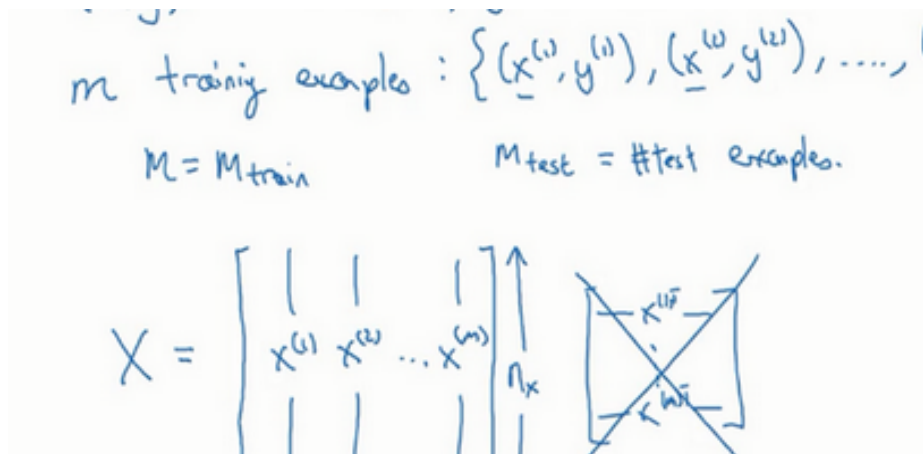 m training examples : {(x^(1), y^(1)), (x^(2), y^(2)), ....,
M = M_train M_test = #test examples.
X = [ x^(1) x^(2) ... x^(m) ] n_x
x^(1)T
x^(m)T